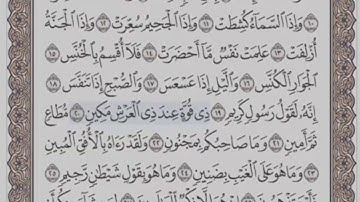 ١٠ وَإِذَا ٱلسَّمَآءُ كُشِطَتۡ ١١ وَإِذَا ٱلۡجَحِيمُ سُعِّرَتۡ ١٢ وَإِذَا ٱلۡجَنَّةُ
أُزۡلِفَتۡ ١٣ عَلِمَتۡ نَفۡسٞ مَّآ أَحۡضَرَتۡ ١٤ فَلَآ أُقۡسِمُ بِٱلۡخُنَّسِ ١٥
ٱلۡجَوَارِ ٱلۡكُنَّسِ ١٦ وَٱلَّيۡلِ إِذَا عَسۡعَسَ ١٧ وَٱلصُّبۡحِ إِذَا تَنَفَّسَ ١٨
إِنَّهُۥ لَقَوۡلُ رَسُولٖ كَرِيمٖ ١٩ ذِي قُوَّةٍ عِندَ ذِي ٱلۡعَرۡشِ مَكِينٖ ٢٠ مُّطَاعٖ
ثَمَّ أَمِينٖ ٢١ وَمَا صَاحِبُكُم بِمَجۡنُونٖ ٢٢ وَلَقَدۡ رَءَاهُ بِٱلۡأُفُقِ ٱلۡمُبِينِ
٢٣ وَمَا هُوَ عَلَى ٱلۡغَيۡبِ بِضَنِينٖ ٢٤ وَمَا هُوَ بِقَوۡلِ شَيۡطَٰنٖ رَّجِيمٖ ٢٥